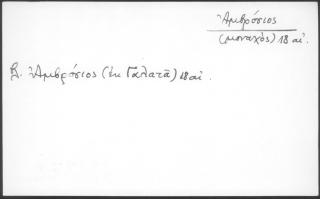 Ἀμβρόσιος
(μοναχὸς) 18 αἰ.
Β. Ἀμβρόσιος (ἐκ Γαλατᾶ) 18 αἰ.